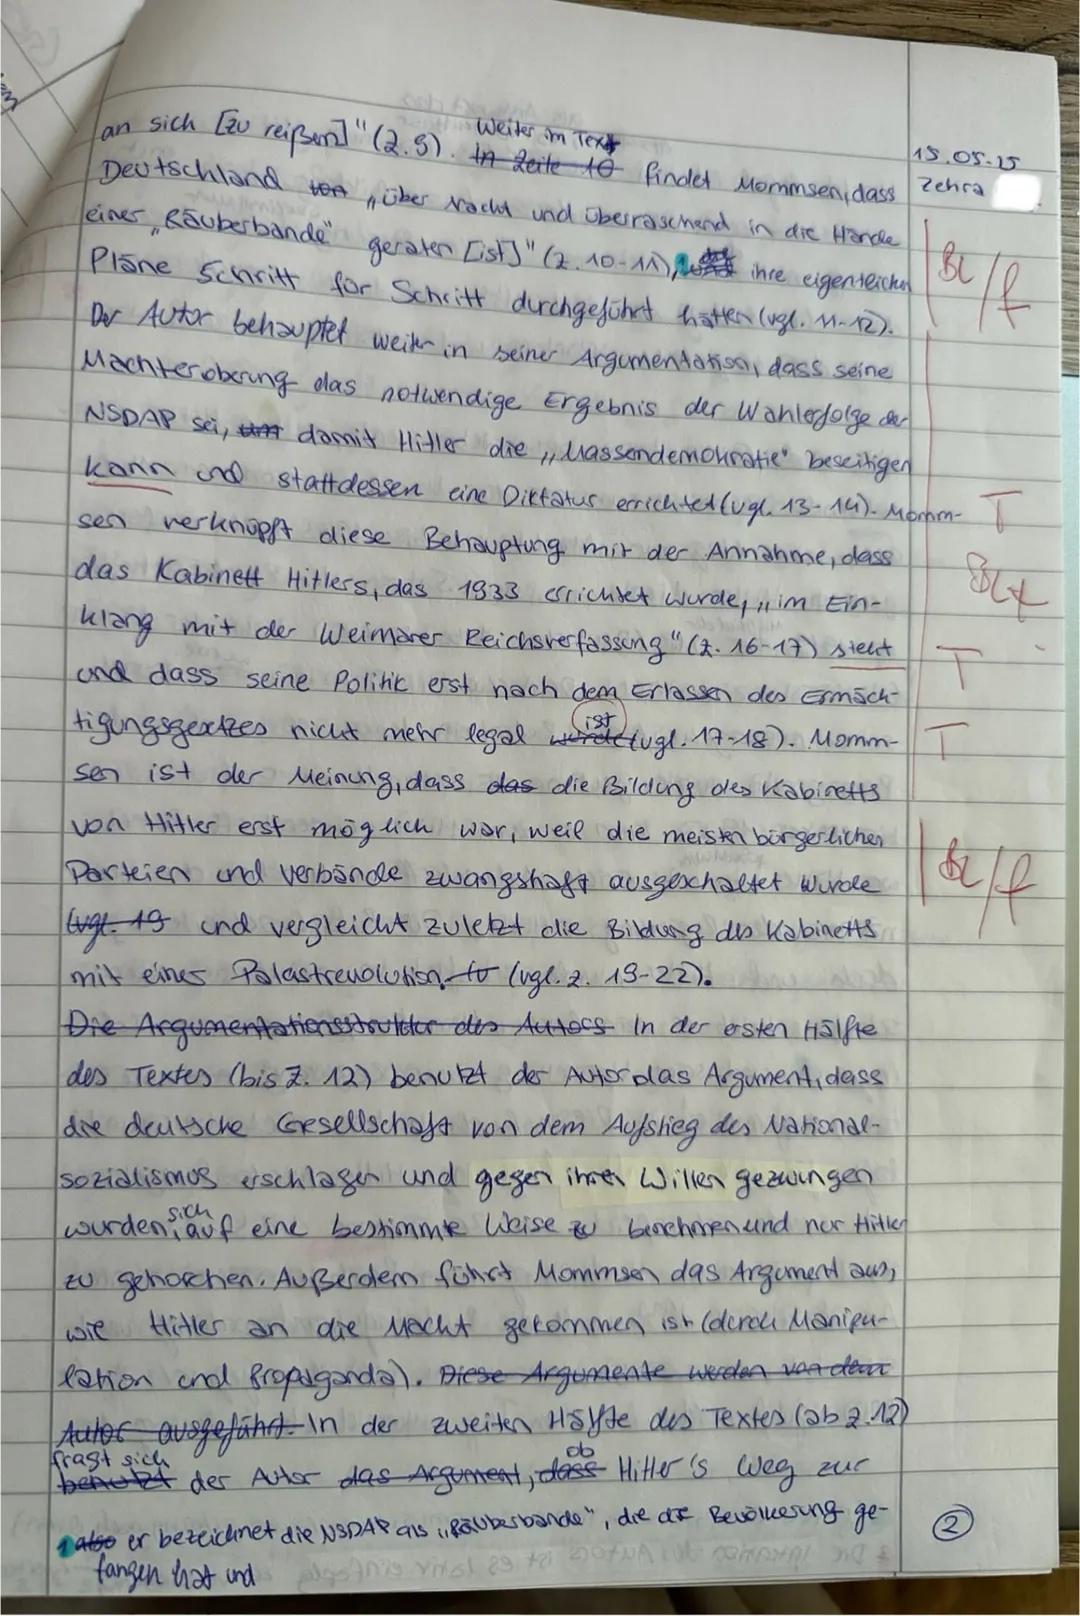 an sich [zu reißen]" (Z.9). Weiter im Text
15.05.25
Zehra
In Zeile 10 findet Mommsen, dass
Deutschland von „über Nacht und überraschend in die Hände
einer „Räuberbande" geraten [ist]" (Z.10-11), ihre eigentlichen
Pläne Schritt für Schritt durchgeführt hätten (vgl. 11-12).
Bz/f
Der Autor behauptet weiter in seiner Argumentation, dass seine
Machteroberung das notwendige Ergebnis der Wahlerfolge der
NSDAP sei, damit Hitler die „Massendemokratie" beseitigen
kann und stattdessen eine Diktatur errichtet (vgl. 13-14). Momm-
T
sen verknüpft diese Behauptung mit der Annahme, dass
das Kabinett Hitlers, das 1933 errichtet wurde, „im Ein-
klang mit der Weimarer Reichsverfassung" (Z. 16-17) steht
T
und dass seine Politik erst nach dem Erlassen des Ermäch-
tigungsgesetzes nicht mehr legal wurde ist (vgl. 17-18). Momm-
T
sen ist der Meinung, dass das die Bildung des Kabinetts
von Hitler erst möglich war, weil die meisten bürgerlichen
Parteien und Verbände zwangshaft ausgeschaltet wurde
Bz/f
(vgl. 19 und vergleicht zuletzt die Bildung des Kabinetts
mit einer Palastrevolution (vgl. Z. 19-22).
Die Argumentationsstruktur des Autors In der ersten Hälfte
des Textes (bis Z. 12) benutzt der Autor das Argument, dass
die deutsche Gesellschaft von dem Aufstieg des National-
sozialismus erschlagen und gegen ihren Willen gezwingen
wurden, sich auf eine bestimmte Weise zu benehmen und nur Hitler
zu gehorchen. Außerdem führt Mommsen das Argument aus,
wie Hitler an die Macht gekommen ist (durch Manipu-
lation und Propaganda). Diese Argumente werden von dem
Autor ausgeführt. In der zweiten Hälfte des Textes (ab Z.12)
fragt sich
benutzt der Autor das Argument, dass ob Hitler's Weg zur
1 also er bezeichnet die NSDAP als „Räuberbande", die die Bevölkerung ge-
fangen hat und
2